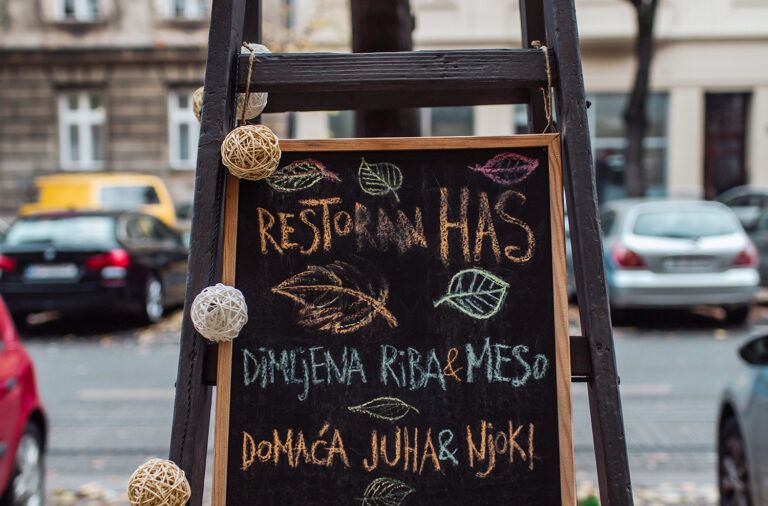 RESTORAN HAS
DIMLJENA RIBA & MESO
DOMAĆA JUHA & NJOKI